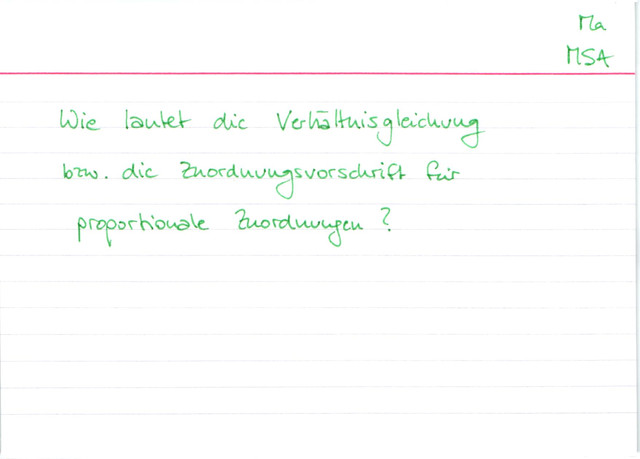 Ma
MSA
Wie lautet die Verhältnisgleichung
bzw. die Zuordnungsvorschrift für
proportionale Zuordnungen?